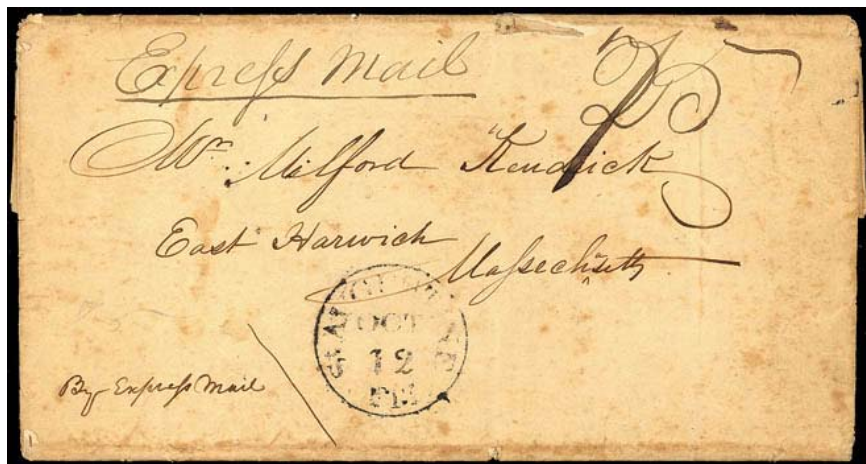 Express Mail
75
Mr. Milford Kendrick
East Harwich
Massechusetts
St. AUGUSTINE
OCT
12
By Express Mail